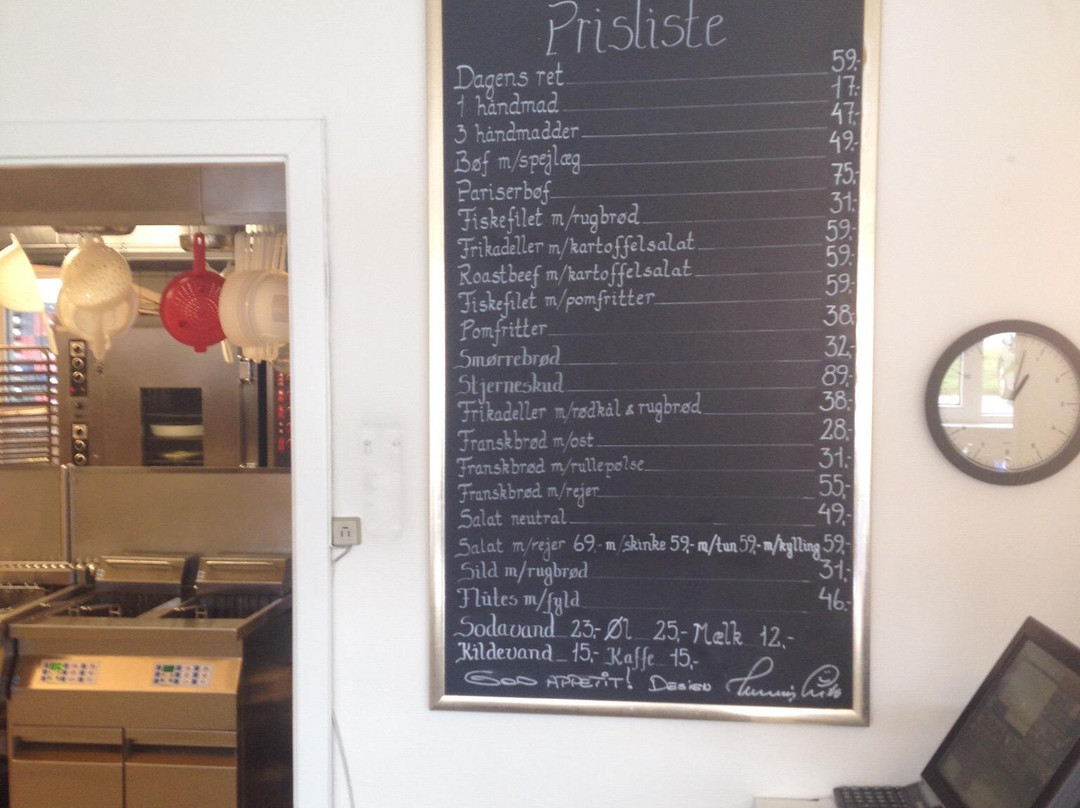 Prisliste
Dagens ret 59,-
1 håndmad 17,-
3 håndmadder 47,-
Bøf m/spejlæg 49,-
Pariserbøf 75,-
Fiskefilet m/rugbrød 31,-
Frikadeller m/kartoffelsalat 59,-
Roastbeef m/kartoffelsalat 59,-
Fiskefilet m/pomfritter 59,-
Pomfritter 38,-
Smørrebrød 32,-
Stjerneskud 89,-
Frikadeller m/rødkål & rugbrød 38,-
Franskbrød m/ost 28,-
Franskbrød m/rullepølse 31,-
Franskbrød m/rejer 55,-
Salat neutral 49,-
Salat m/rejer 69,- m/skinke 59,- m/tun 59,- m/kylling 59,-
Sild m/rugbrød 31,-
Flütes m/fyld 46,-
Sodavand 23,- Øl 25,- Mælk 12,-
Kildevand 15,- Kaffe 15,-
God appetit! Design